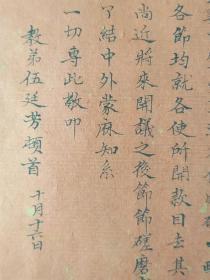 各節均就各使所開款目去其
尚近將來開議之後節節磋磨
了結中外蒙庥知系
一切專此敬叩
教弟伍廷芳頓首
十月十六日